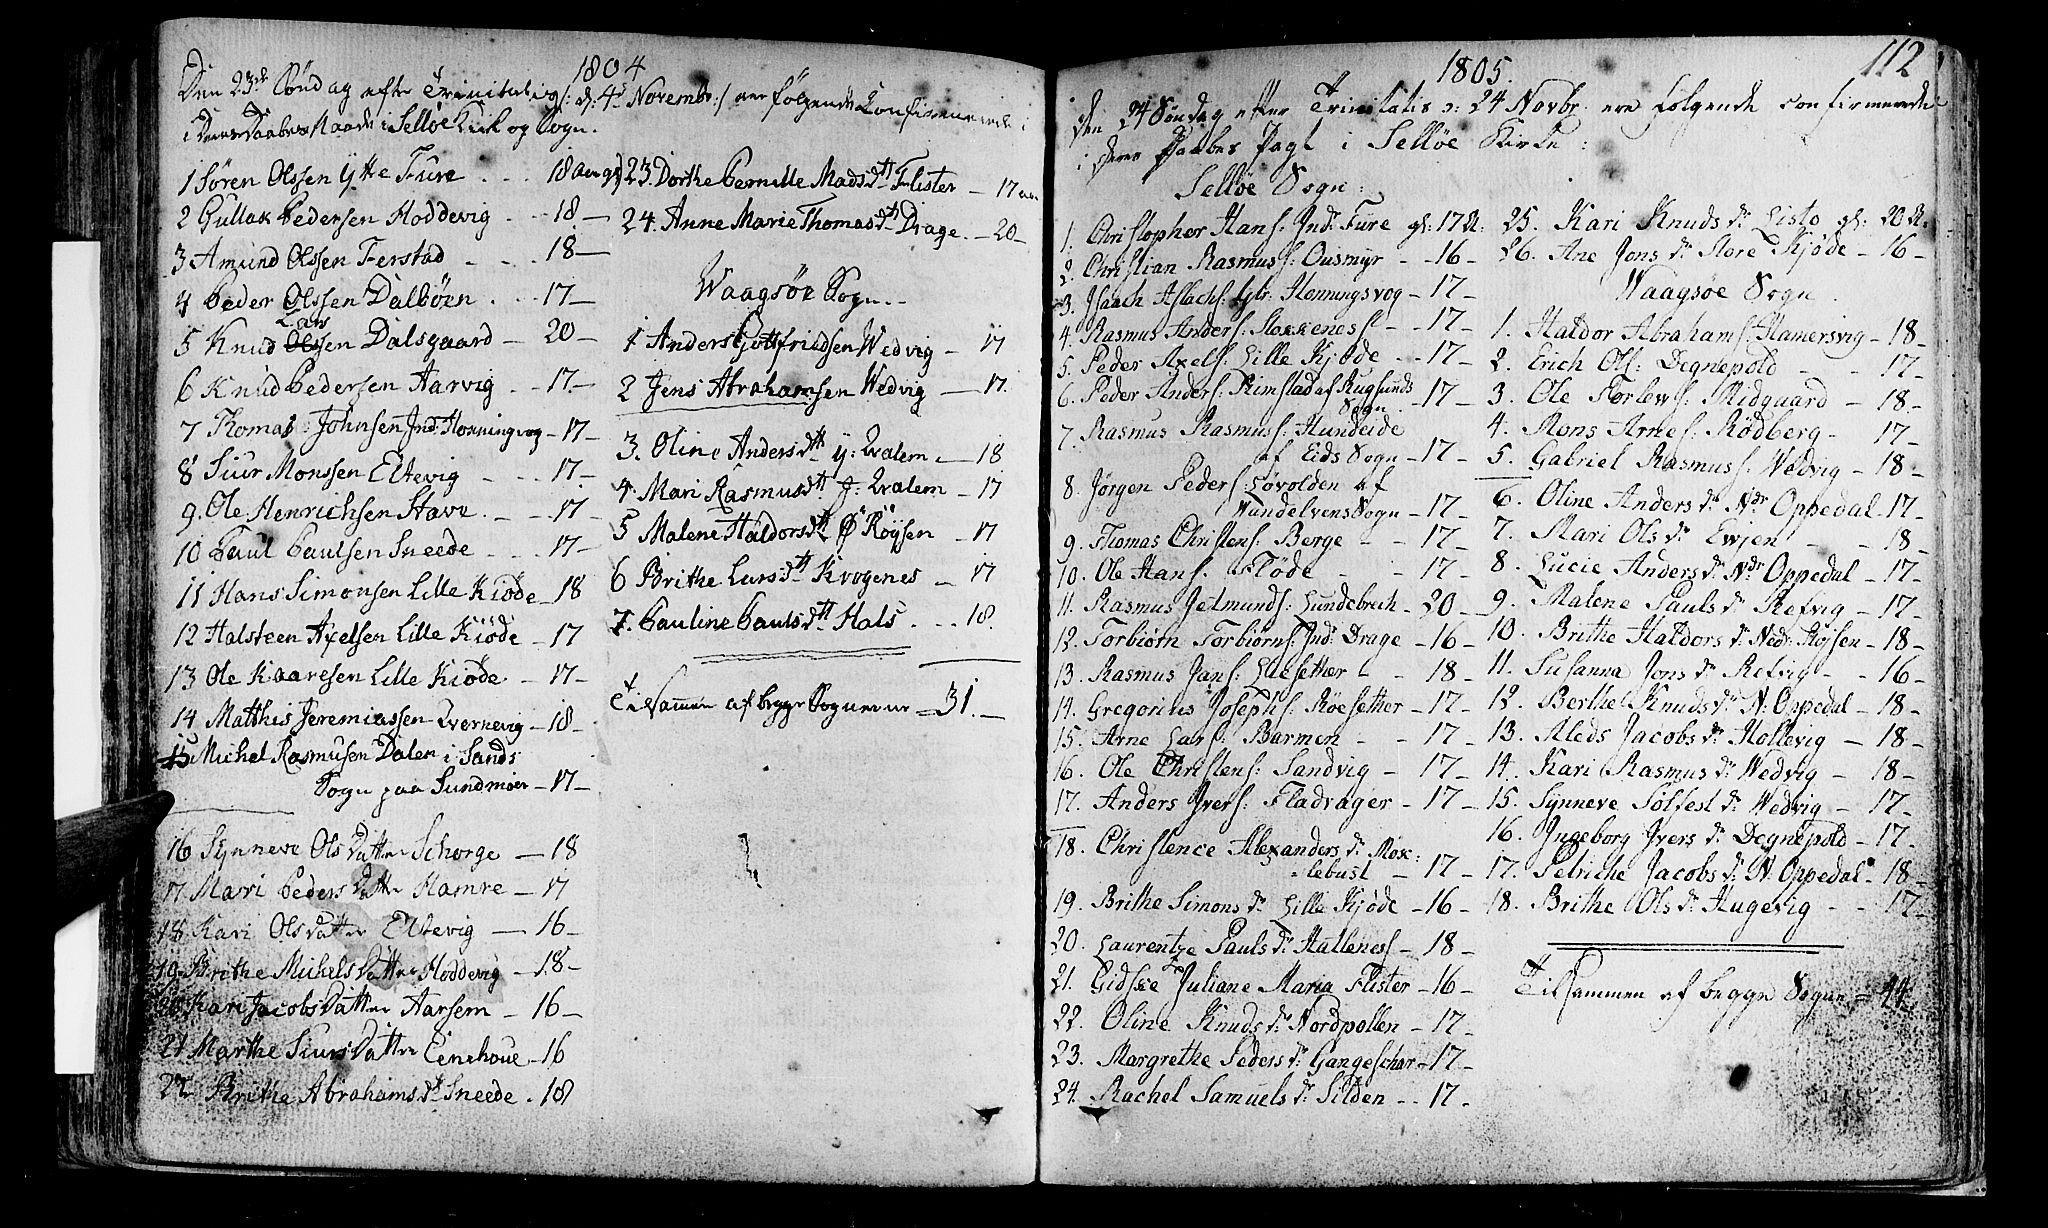 1804
Den 23de Søndag efter Trinitatis /: d: 4de Novembr :/ ere følgende Confirmerede i
i Deres Daabes Naade i Selløe Kirk og Sogn.
1 Søren Olssen Ytte Fure . . . 18 aar gl)
2 Gullak Pedersen Hoddevig - - 18 —
3 Amund Olssen Ferstad - - - 18 —
4 Peder Olssen Dalbøen . - - 17 —
Lars
5 Knud Olssen Dalsgaard — 20 —
6 Knud Pedersen Aarvig . - - 17. —
7 Thomas Johnsen Ind: Honningvog — 17 —
8 Siur Monssen Eltevig - - - 17. —
9. Ole Henrichsen Stave . — - 17 —
10 Paul Paulsen Sneede - - - 17 —
11 Hans Simonsen Lille Kiøde — 18
12 Halsteen Axelsen Lille Kiøde — 17
13 Ole Kaaresen Lille Kiøde — 17 —
14 Matthis Jeremiassen Qvernevig — 18 —
15 Michel Rasmusen Dalen i Sands
Sogn paa Sundmøer — 17 —
16 Synneve OlsDatter Schorge — 18
17 Marri PedersDatter Hamre — 17
18 Kari OlsDatter Eltevig — 16 —
19 Brithe MichelsDatter Hoddevig — 18 —
20 Kari JacobsDatter Aarsem — 16 —
21 Marthe SiursDatter Eenehoue — 16
22 Brithe Abrahams dtt Sneede . 18
23 Dorthe Pernille Mads dtt Flister — 17 aar
24. Anne Marie Thomas dtt Drage . — 20 —
Waagsøe Sogn. .
1 Anders Gottfriedsen Wedvig — 17
2 Jens Abrahamsen Wedvig — 17.
3. Oline Anders dtt y: Qvalem . — 18
4 Mari Rasmus dtt J: Qvalem — 17
5 Malene Haldors dtt Ø Røysen — 17
6 Brithe Lars dtt Kvogenes — 17
7. Pauline Pauls dtt Hals . . . 18.
Tilsammen af begge Sognerne — 31. —
1805.
112
Den 24 Søndag efter Trinitatis d: 24 Novbr. ere følgende confirmerede
i deres Daabes Pagt i Selløe Kirke :
Selløe Sogn :
1. Christopher Hans: Ind: Fure gl: 17 A:
2. Christian Rasmus: Ousmyr - - 16 —
3. Isaach Aslachs: Ytr: Henningsvog — 17 —
4. Rasmus Anders: Stokkeness - - 17 —
5. Peder Axels: Lille Kjøde - - 17 —
6. Peder Anders: Rimstad af Rugsunds
Sogn . — 17 —
7. Rasmus Rasmus: Hundeide
af Eids Sogn — 17 —
8. Jørgen Peders: Løvolden af
Wandelvens Sogn — 17 —
9. Thomas Christens: Berge - - 17 —
10. Ole Hans: Fløde - - 17 —
11. Rasmus Jetmunds: Lundebrech — 20 —
12. Torbiørn Torbiørns: Ind: Drage — 16 —
13. Rasmus Jans: Lasether - - 18 —
14. Gregorius Josephs: Røesether — 17 —
15. Arne Lars: Barmen - - 17 —
16. Ole Christens: Sandvig — 17 —
17. Anders Ivers: Fladrager — 17 —
18. Christence Alexanders dr Mos:
:lebust — 17 —
19. Brithe Simons dr Lille Kjøde — 16 —
20. Laurentze Pauls dr Hatlenes — 18 —
21. Gidske Juliane Maria Flister — 16 —
22. Oline Knuds dr Nordpollen — 17 —
23. Margrethe Peders dr Gangeschar — 17 —
24. Rachel Samuels dr Silden - - 17 —
25. Kari Knuds dr Listo gl: 20 A.
26. Ane Jons dr Store Kjøde — 16 —
Waagsøe Sogn .
1. Haldor Abrahams: Hamersvig — 18 —
2. Erich Ols: Degnepold - - 17 —
3. Ole Torlews: Midgaard — 18 —
4. Mons Arnes: Rødberg — 17 —
5. Gabriel Rasmus: Wedvig — 18 —
6. Oline Anders dr Ndr Oppedal — 17 —
7. Mari Ols dr Ewjen - - 18 —
8. Lucie Anders dr Ndr Oppedal — 17 —
9. Malene Pauls dr Refvig — 17 —
10. Brithe Haldors dr Ned: Røjsen — 18 —
11. Susanna Jons dr Refvig — 16 —
12. Berthe Knuds dr N: Oppedal — 18 —
13. Aleds Jacobs dr Hollevig — 18 —
14. Kari Rasmus dr Wedvig — 18 —
15. Synneve Sølfest dr Wedvig — 17 —
16. Ingeborg Ivers dr Degnepold — 17 —
17. Petriche Jacobs dr N. Oppedal — 18 —
18. Brithe Ols dr Hugevig - - 17 —
Tilsammen af begge Sogne — 44